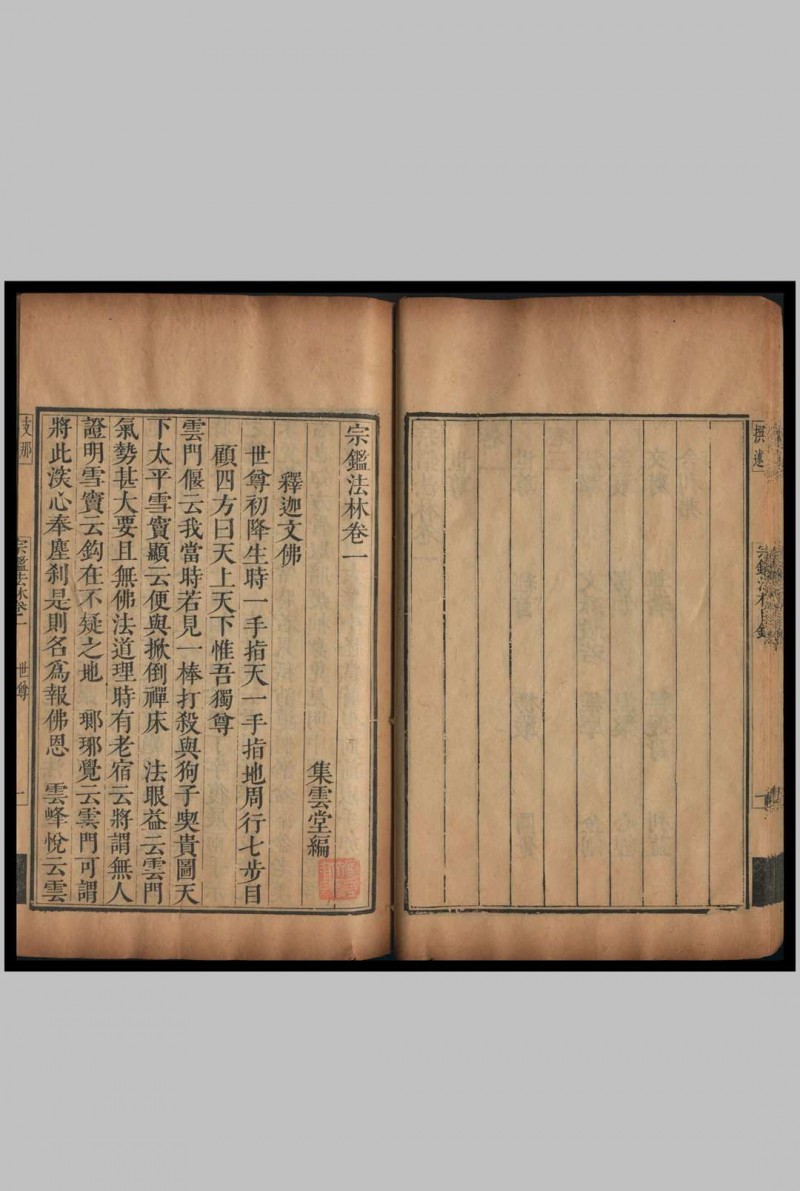 撰述
宗鑑法林目錄
一
宗鑑法林卷一
集雲堂編
釋迦文佛
世尊初降生時一手指天一手指地周行七步目
顧四方曰天上天下惟吾獨尊
雲門偃云我當時若見一棒打殺與狗子喫貴圖天
下太平雪竇顯云便與掀倒禪床　法眼益云雲門
氣勢甚大要且無佛法道理時有老宿云將謂無人
證明雪竇云鈎在不疑之地　瑯琊覺云雲門可謂
將此深心奉塵刹是則名爲報佛恩　雲峰悅云雲
支那
宗鑑法林卷一
世尊
一